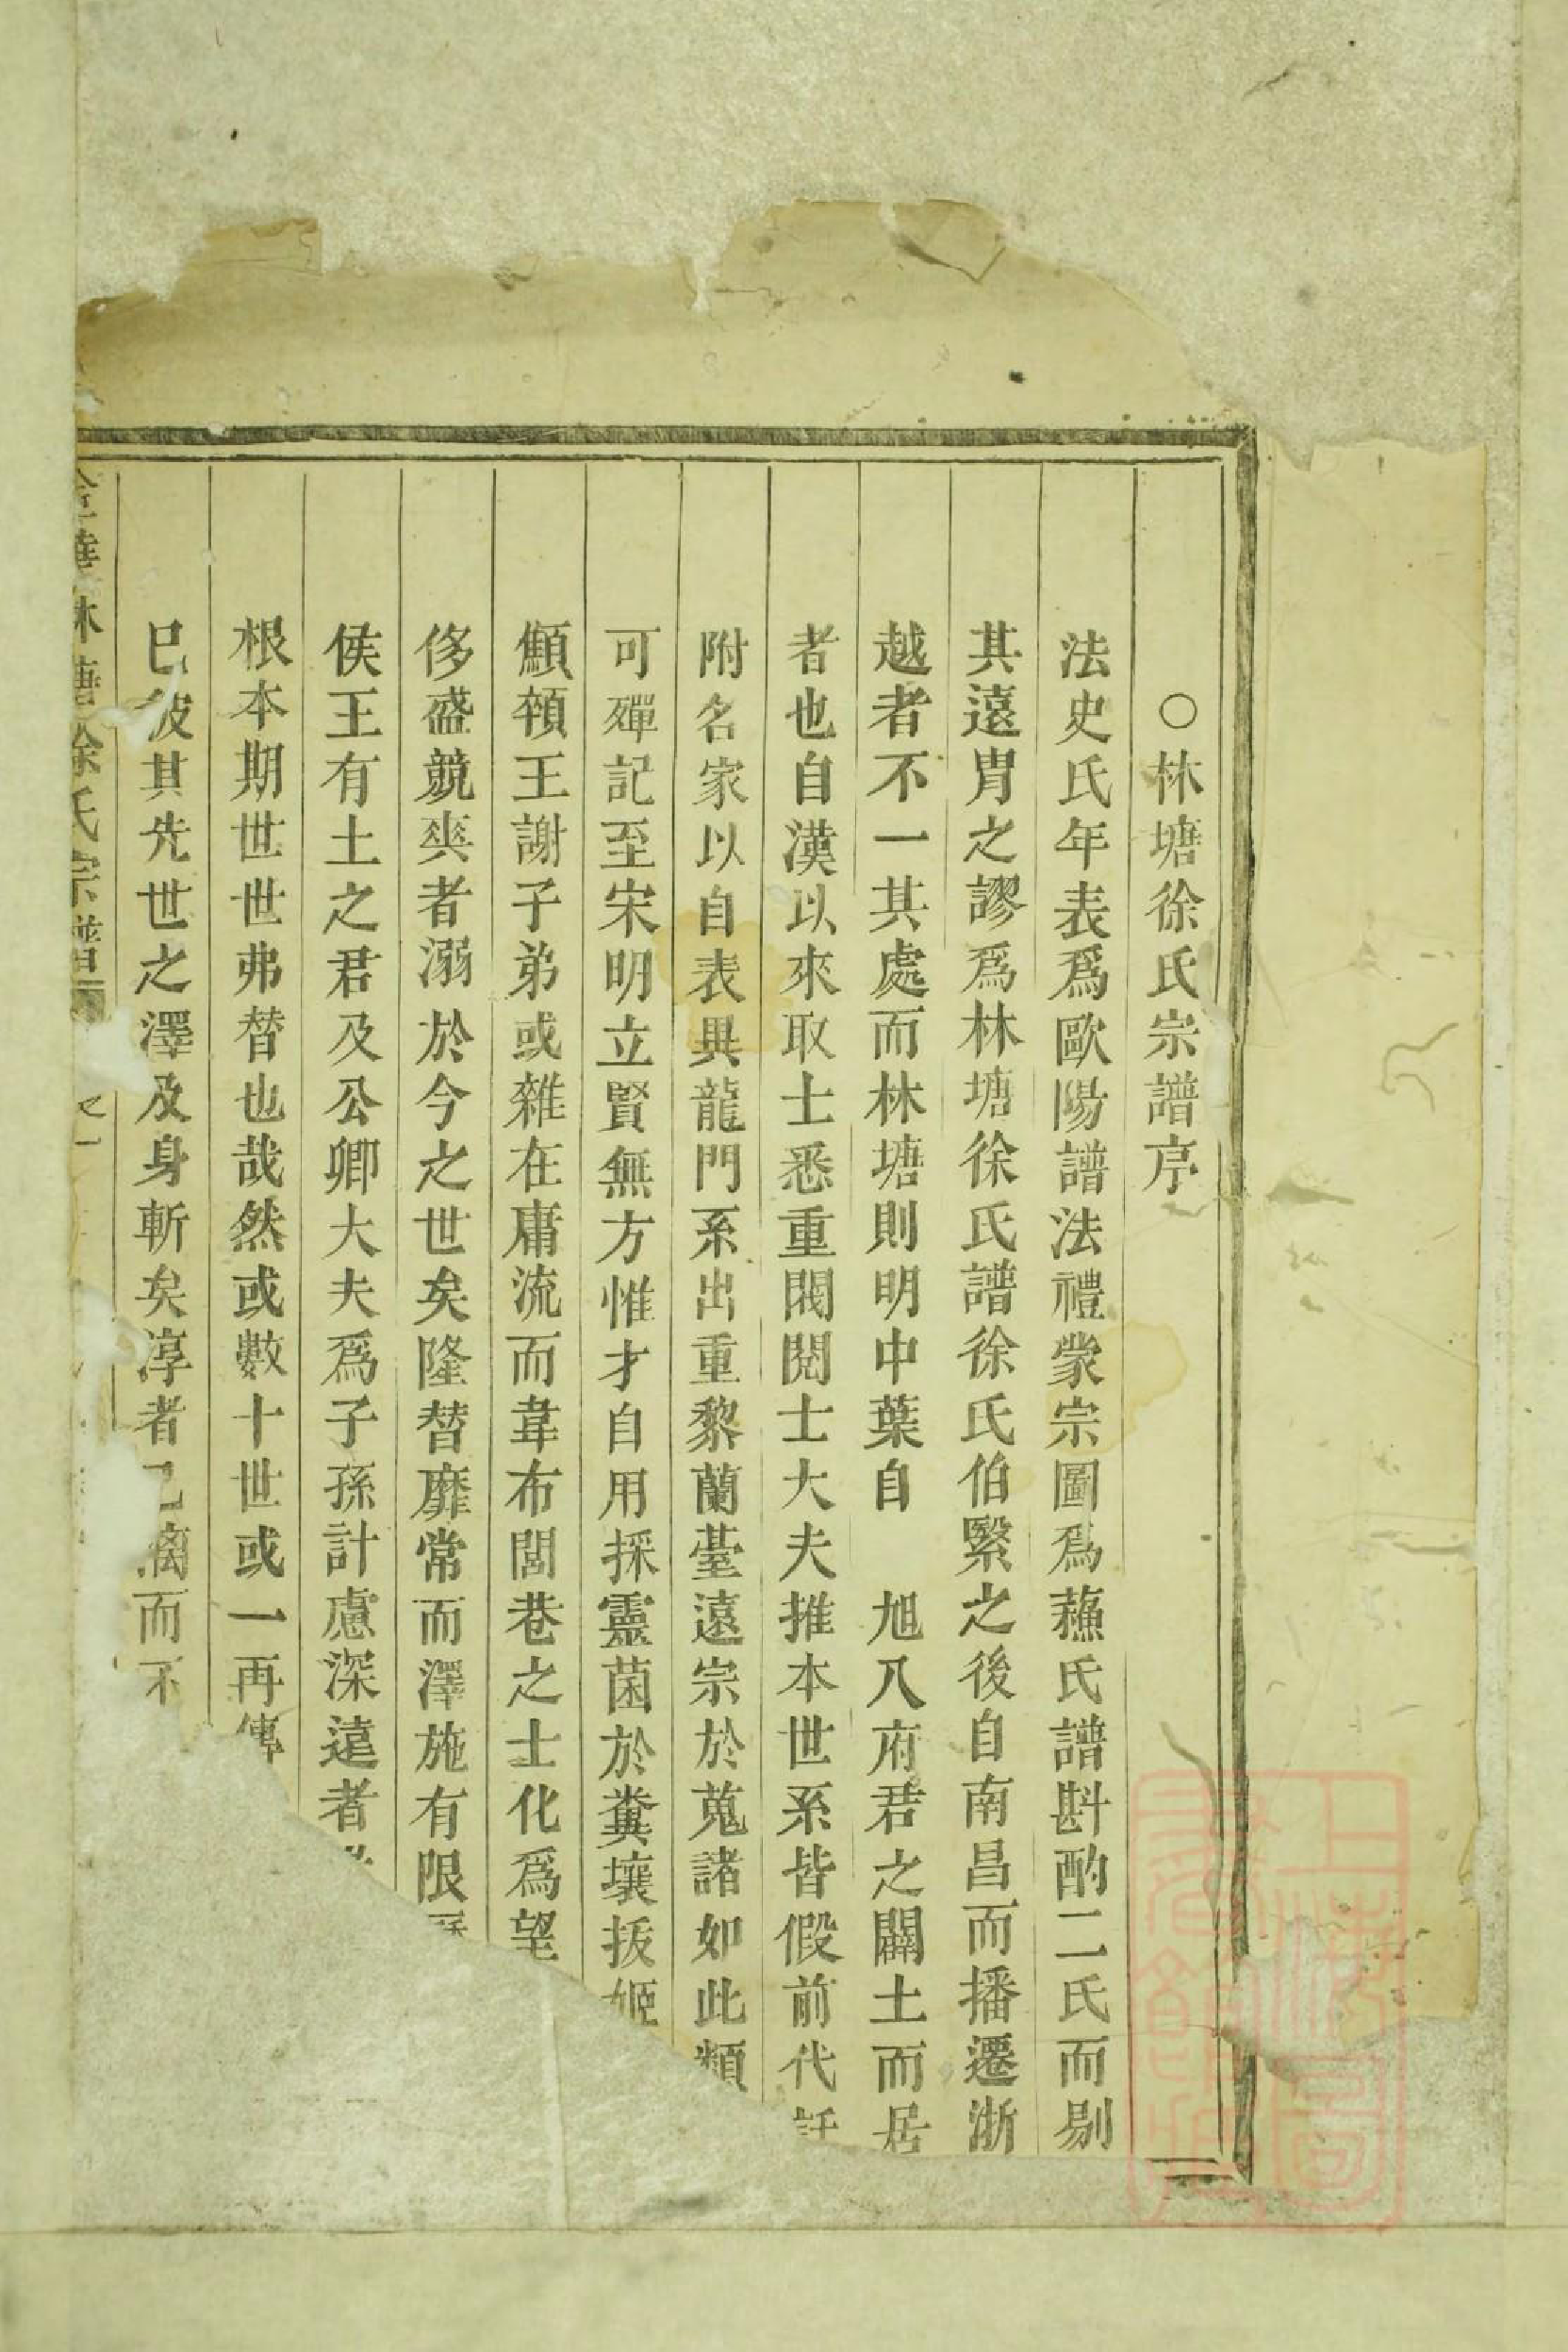 ○林塘徐氏宗譜序
法史氏年表爲歐陽譜法禮蒙宗圖爲蘓氏譜斟酌二氏而剔
其遠胄之謬爲林塘徐氏譜徐氏伯繄之後自南昌而播遷浙
越者不一其處而林塘則明中葉自 旭八府君之闢土而居
者也自漢以來取士悉重閥閱士大夫推本世系皆假前代
附名家以自表異龍門系出重黎蘭臺遠宗於蒐諸如此類
可殫記至宋明立賢無方惟才自用採靈菌於糞壤拔姬
顦顇王謝子弟或雜在庸流而韋布閭巷之士化爲望
侈盛競爽者溺於今之世矣隆替靡常而澤施有限
侯王有土之君及公卿大夫爲子孫計慮深遠者
根本期世世弗替也哉然或數十世或一再傳
已彼其先世之澤及身斬矣淳者已漓而不
金華林塘徐氏宗譜